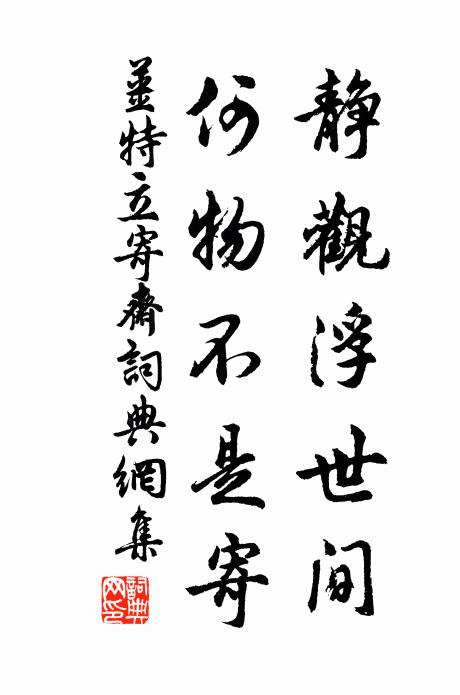 静觀浮世間
何物不是寄
姜特立寄齋詞典網集
詞典網印